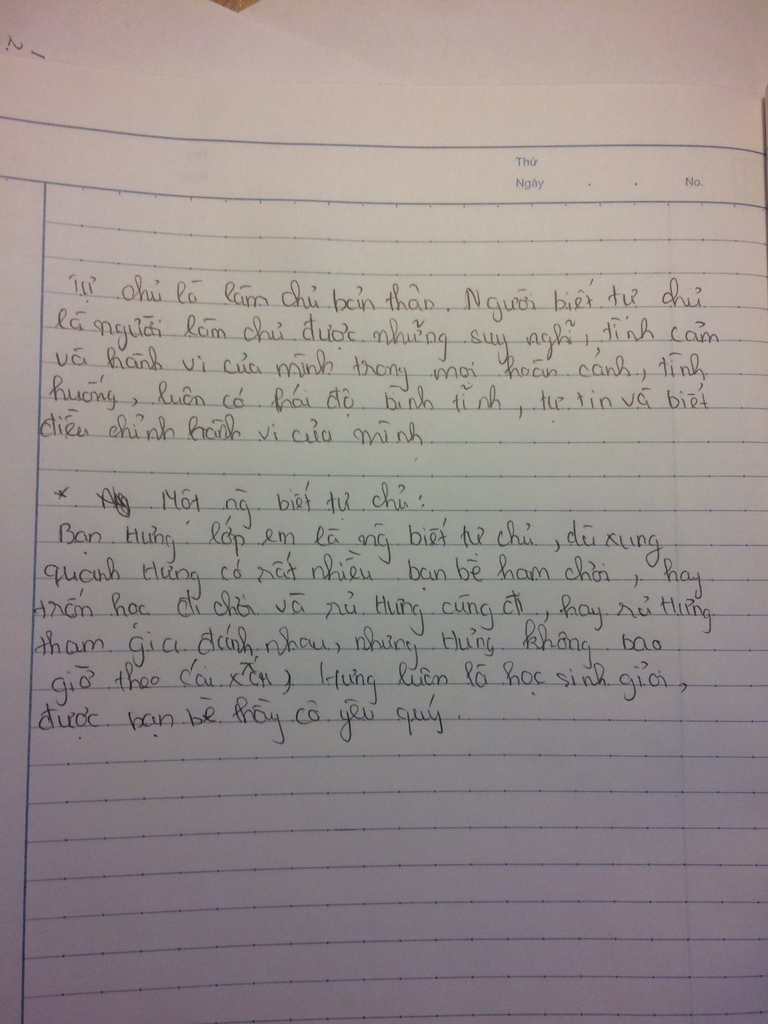 Thứ
Ngày . . No.
Tự chủ là làm chủ bản thân. Người biết tự chủ
là người làm chủ được những suy nghĩ, tình cảm
và hành vi của mình trong mọi hoàn cảnh, tình
huống, luôn có thái độ bình tĩnh, tự tin và biết
điều chỉnh hành vi của mình
* Một ng biết tự chủ:
Bạn Hưng lớp em là ng biết tự chủ, dù xung
quanh Hưng có rất nhiều bạn bè ham chơi, hay
trốn học đi chơi và rủ Hưng cùng đi, hay rủ Hưng
tham gia đánh nhau, nhưng Hưng không bao
giờ theo cái xấu, Hưng luôn là học sinh giỏi,
được bạn bè thầy cô yêu quý.